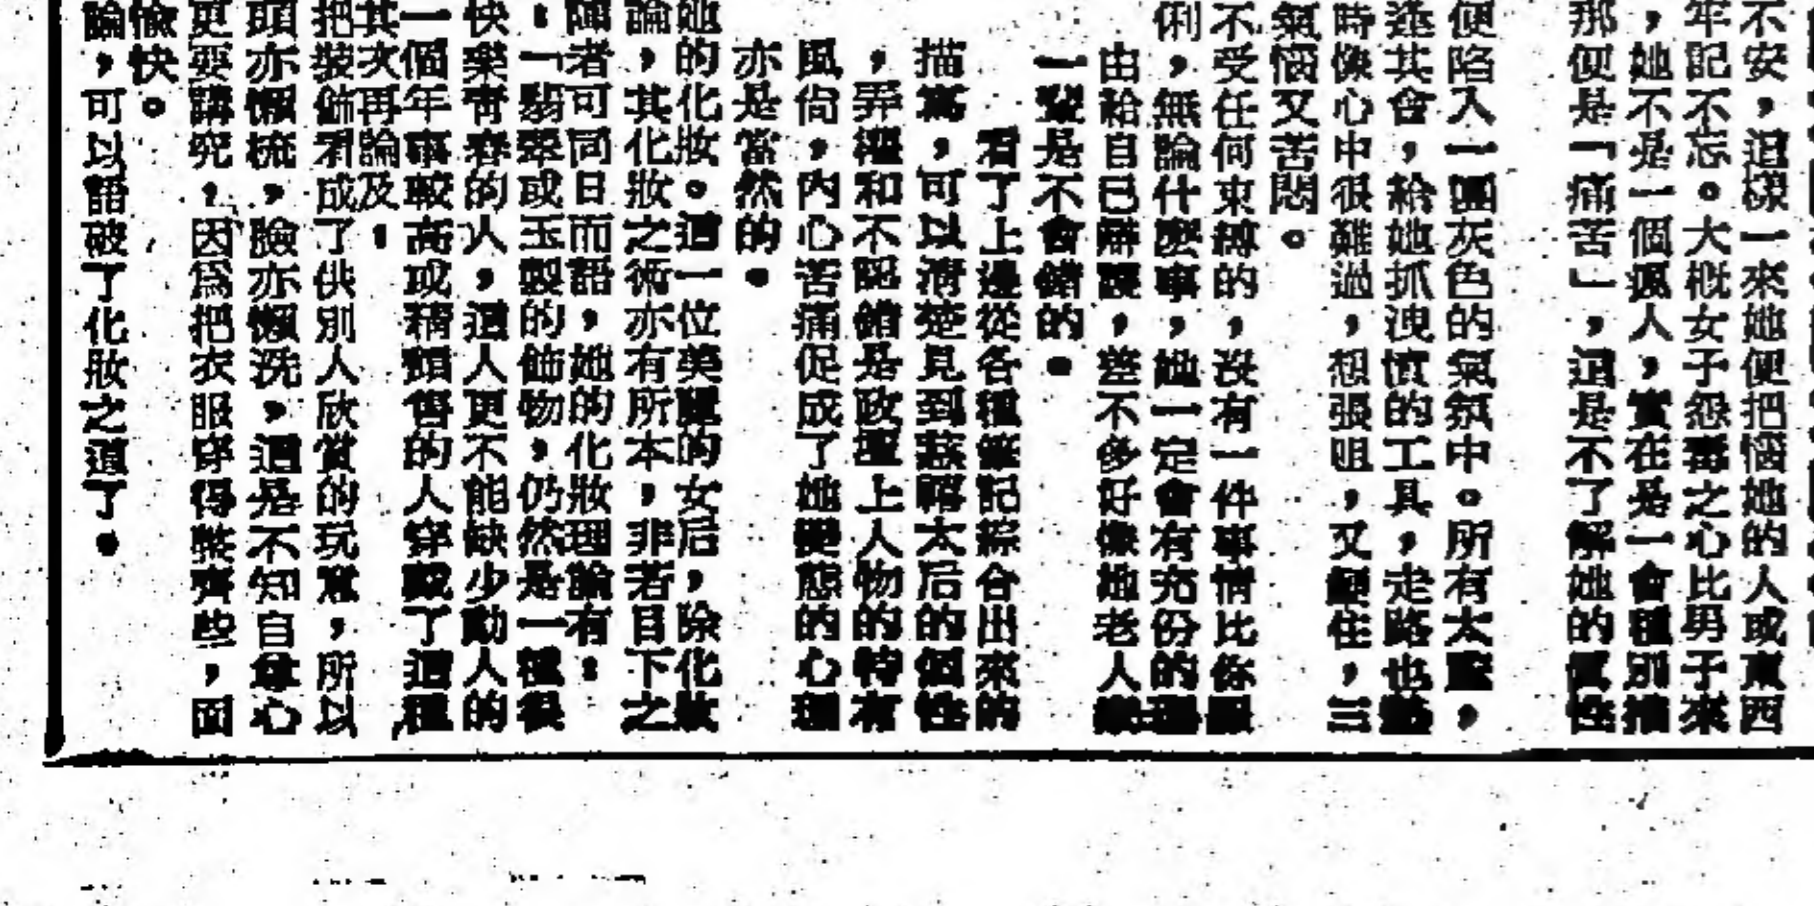 不安，這樣一來她便把惱她的人或東西
牢記不忘。大概女子怨毒之心比男子來
，她不是一個瘋人，實在是一會種別
那便是「痛苦」，這是不了解她的個性
便陷入一團灰色的氣氛中。所有太監，
逢其會，給她抓洩憤的工具，走路也
時像心中很難過，想張咀，又住，三
氣惱又苦悶。
不受任何束縛的，沒有一件事情比你
俐，無論什麼事，她一定會有充份的理
由給自己辯護，差不多好像她老人
一輩是不會錯的。
看了上邊從各種筆記綜合出來的
描寫，可以清楚見到慈禧太后的個性
，弄權和不認錯是政壇上人物的特有
風尙，內心苦痛促成了她變態的心理
亦是當然的。
她的化妝。這一位美麗的女后，除化妝
論，其化妝之術亦有所本，非若目下之
者可同日而語，她的化妝理論有：
：「翡翠或玉製的飾物，仍然是一種很
快樂靑春的人，這人更不能缺少動人的
一個年事較高或稍顯舊的人穿戴了這種
其次再論及。
把裝飾看成了供別人欣賞的玩意，所以
頭亦懶梳，臉亦懶洗，這是不知自尊心
更要講究，因爲把衣服穿得整齊些，面
愉快。
論，可以語破了化妝之道了。